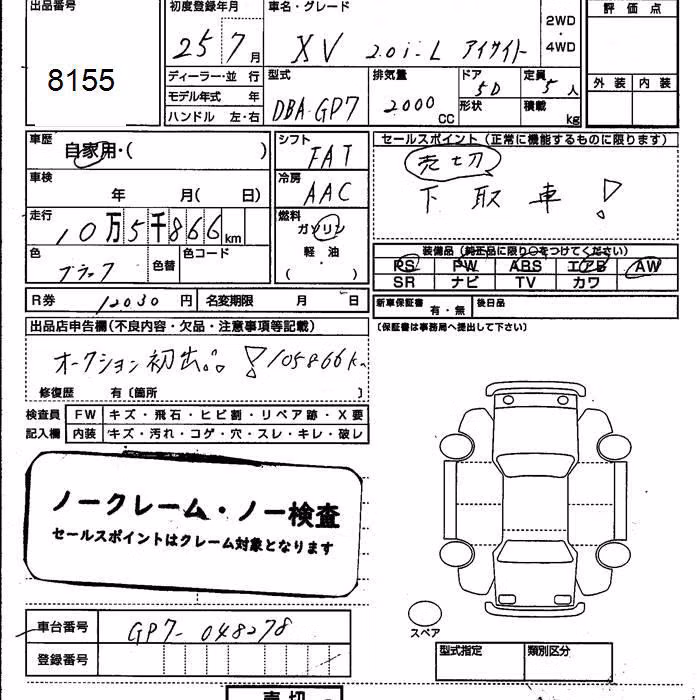 出品番号 初度登録年月 車名・グレード 2WD・4WD 評価点
8155 25 7月 XV 2.0i-L アイサイト
ディーラー・並行 型式 排気量 ドア 定員 外装 内装
モデル年式 年 DBA-GP7 2000 CC 5D 5人
ハンドル 左・右 形状 積載 kg
車歴 シフト セールスポイント(正常に機能するものに限ります)
自家用・( ) FAT 売切
車検 冷房 下取車!
年 月( 日) AAC
走行 燃料
10万5千866km ガソリン
色 色替 色コード 軽油 装備品(純正品に限り○をつけてください)
ブラック ・( ) PS PW ABS エアB AW
SR ナビ TV カワ
R券 12030円 名変期限 月 日 新車保証書 有・無 後日品
出品店申告欄(不良内容・欠品・注意事項等記載) (保証書は事務局へ提出して下さい)
オークション初出品! 105866km
修復歴 有〔箇所 〕
検査員 FW キズ・飛石・ヒビ割・リペア跡・X要
記入欄 内装 キズ・汚れ・コゲ・穴・スレ・キレ・破レ
ノークレーム・ノー検査
セールスポイントはクレーム対象となります
スペア
車台番号 GP7-048278
登録番号 型式指定 類別区分
売切